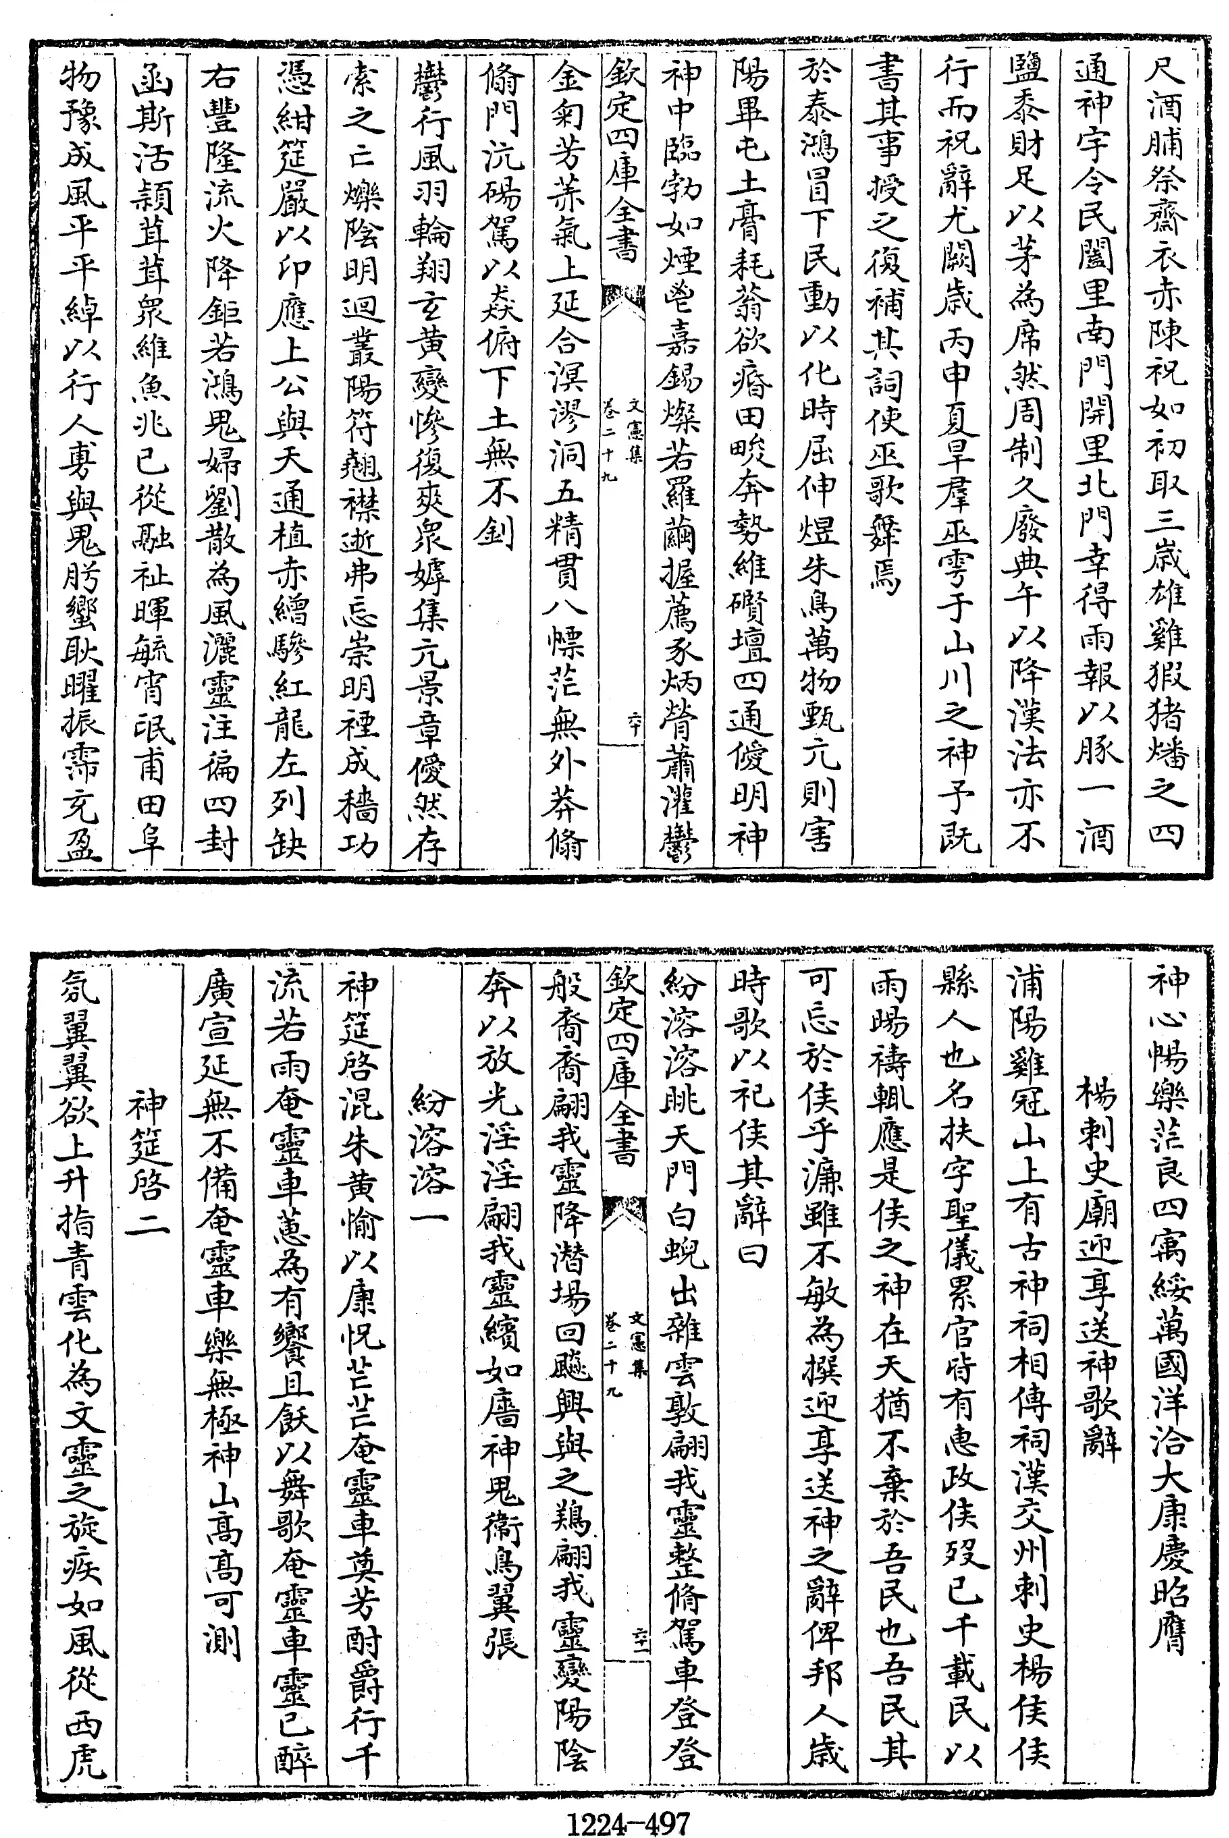 尺酒脯祭齋衣赤陳祝如初取三歲雄雞猳猪燔之四
通神宇令民闔里南門開里北門幸得雨報以豚一酒
鹽黍財足以茅為席然周制久廢典午以降漢法亦不
行而祝辭尤闕歲丙申夏旱羣巫雩于山川之神予既
書其事授之復補其詞使巫歌舞焉
於泰鴻冒下民動以化時屈伸煜朱鳥萬物甄亢則害
陽畢屯土膏耗蓊欲瘖田畯奔勢維礥壇四通僾明神
神中臨勃如煙鬯嘉錫燦若羅繭握薦豕炳膋蕭灌鬱
欽定四庫全書
文憲集
卷二十九
六十
金菊芳葇氣上延合溟漻洞五精貫八慓茫無外莽翛
翛門沆碭駕以猋俯下土無不釗
鬱行風羽輪翔玄黄變慘復爽衆嫭集元景章僾然存
索之亡爍陰明迴叢陽符翹襟逝弗忘崇明禋成穡功
憑紺筵嚴以卬應上公與天通植赤繒驂紅龍左列缺
右豐隆流火降鉅若鴻鬼婦劉散為風灑靈注徧四封
函斯活頴茸茸衆維魚兆已從融祉暉毓宵氓甫田阜
物豫成風平平綽以行人旉與鬼肹蠁耿曜振霈充盈
神心暢樂茫良四㝢綏萬國洋洽大康慶昭膺
楊刺史廟迎享送神歌辭
浦陽雞冠山上有古神祠相傳祠漢交州刺史楊侯侯
縣人也名扶字聖儀累官皆有惠政侯歿已千載民以
雨暘禱輒應是侯之神在天猶不棄於吾民也吾民其
可忘於侯乎濂雖不敏為撰迎享送神之辭俾邦人歲
時歌以祀侯其辭曰
紛溶溶眺天門白蜺出雜雲敦翩我靈整翛駕車登登
欽定四庫全書
文憲集
卷二十九
六十一
般裔裔翩我靈降潛場回飈興與之鶏翩我靈變陽陰
奔以放光淫淫翩我靈繽如廧神鬼衛鳥翼張
紛溶溶一
神筵啓混朱黄愉以康怳芒芒奄靈車奠芳酎爵行千
流若雨奄靈車蔥為有饗且飫以舞歌奄靈車靈已醉
廣宣延無不備奄靈車樂無極神山高高可測
神筵啓二
氛翼翼欲上升指青雲化為文靈之旋疾如風從西虎
1224-497